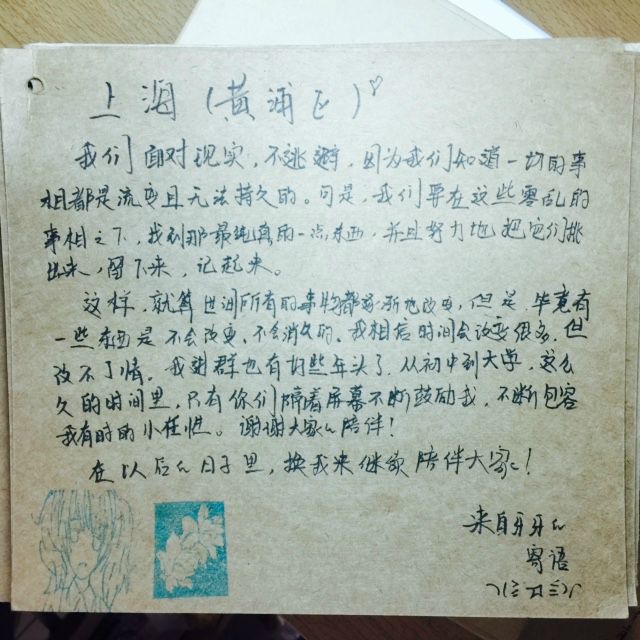 上海(黄浦区)♡
我们面对现实,不逃避,因为我们知道一切的事
相都是流变且无法持久的。可是,我们要在这些零乱的
事相之下,找到那最纯真的一点东西,并且努力地把它们挑
出来,留下来,记起来。
这样,就算世间所有的事物都要渐地改变,但是,毕竟有
一些东西是不会改变、不会消失的。我相信时间会改变很多,但
改不了情。我进群也有好些年头了,从初中到大学,这么
久的时间里,只有你们隔着屏幕不断鼓励我,不断包容
我有时的小任性。谢谢大家的陪伴!
在以后的日子里,换我来继续陪伴大家!
来自牙牙的
寄语